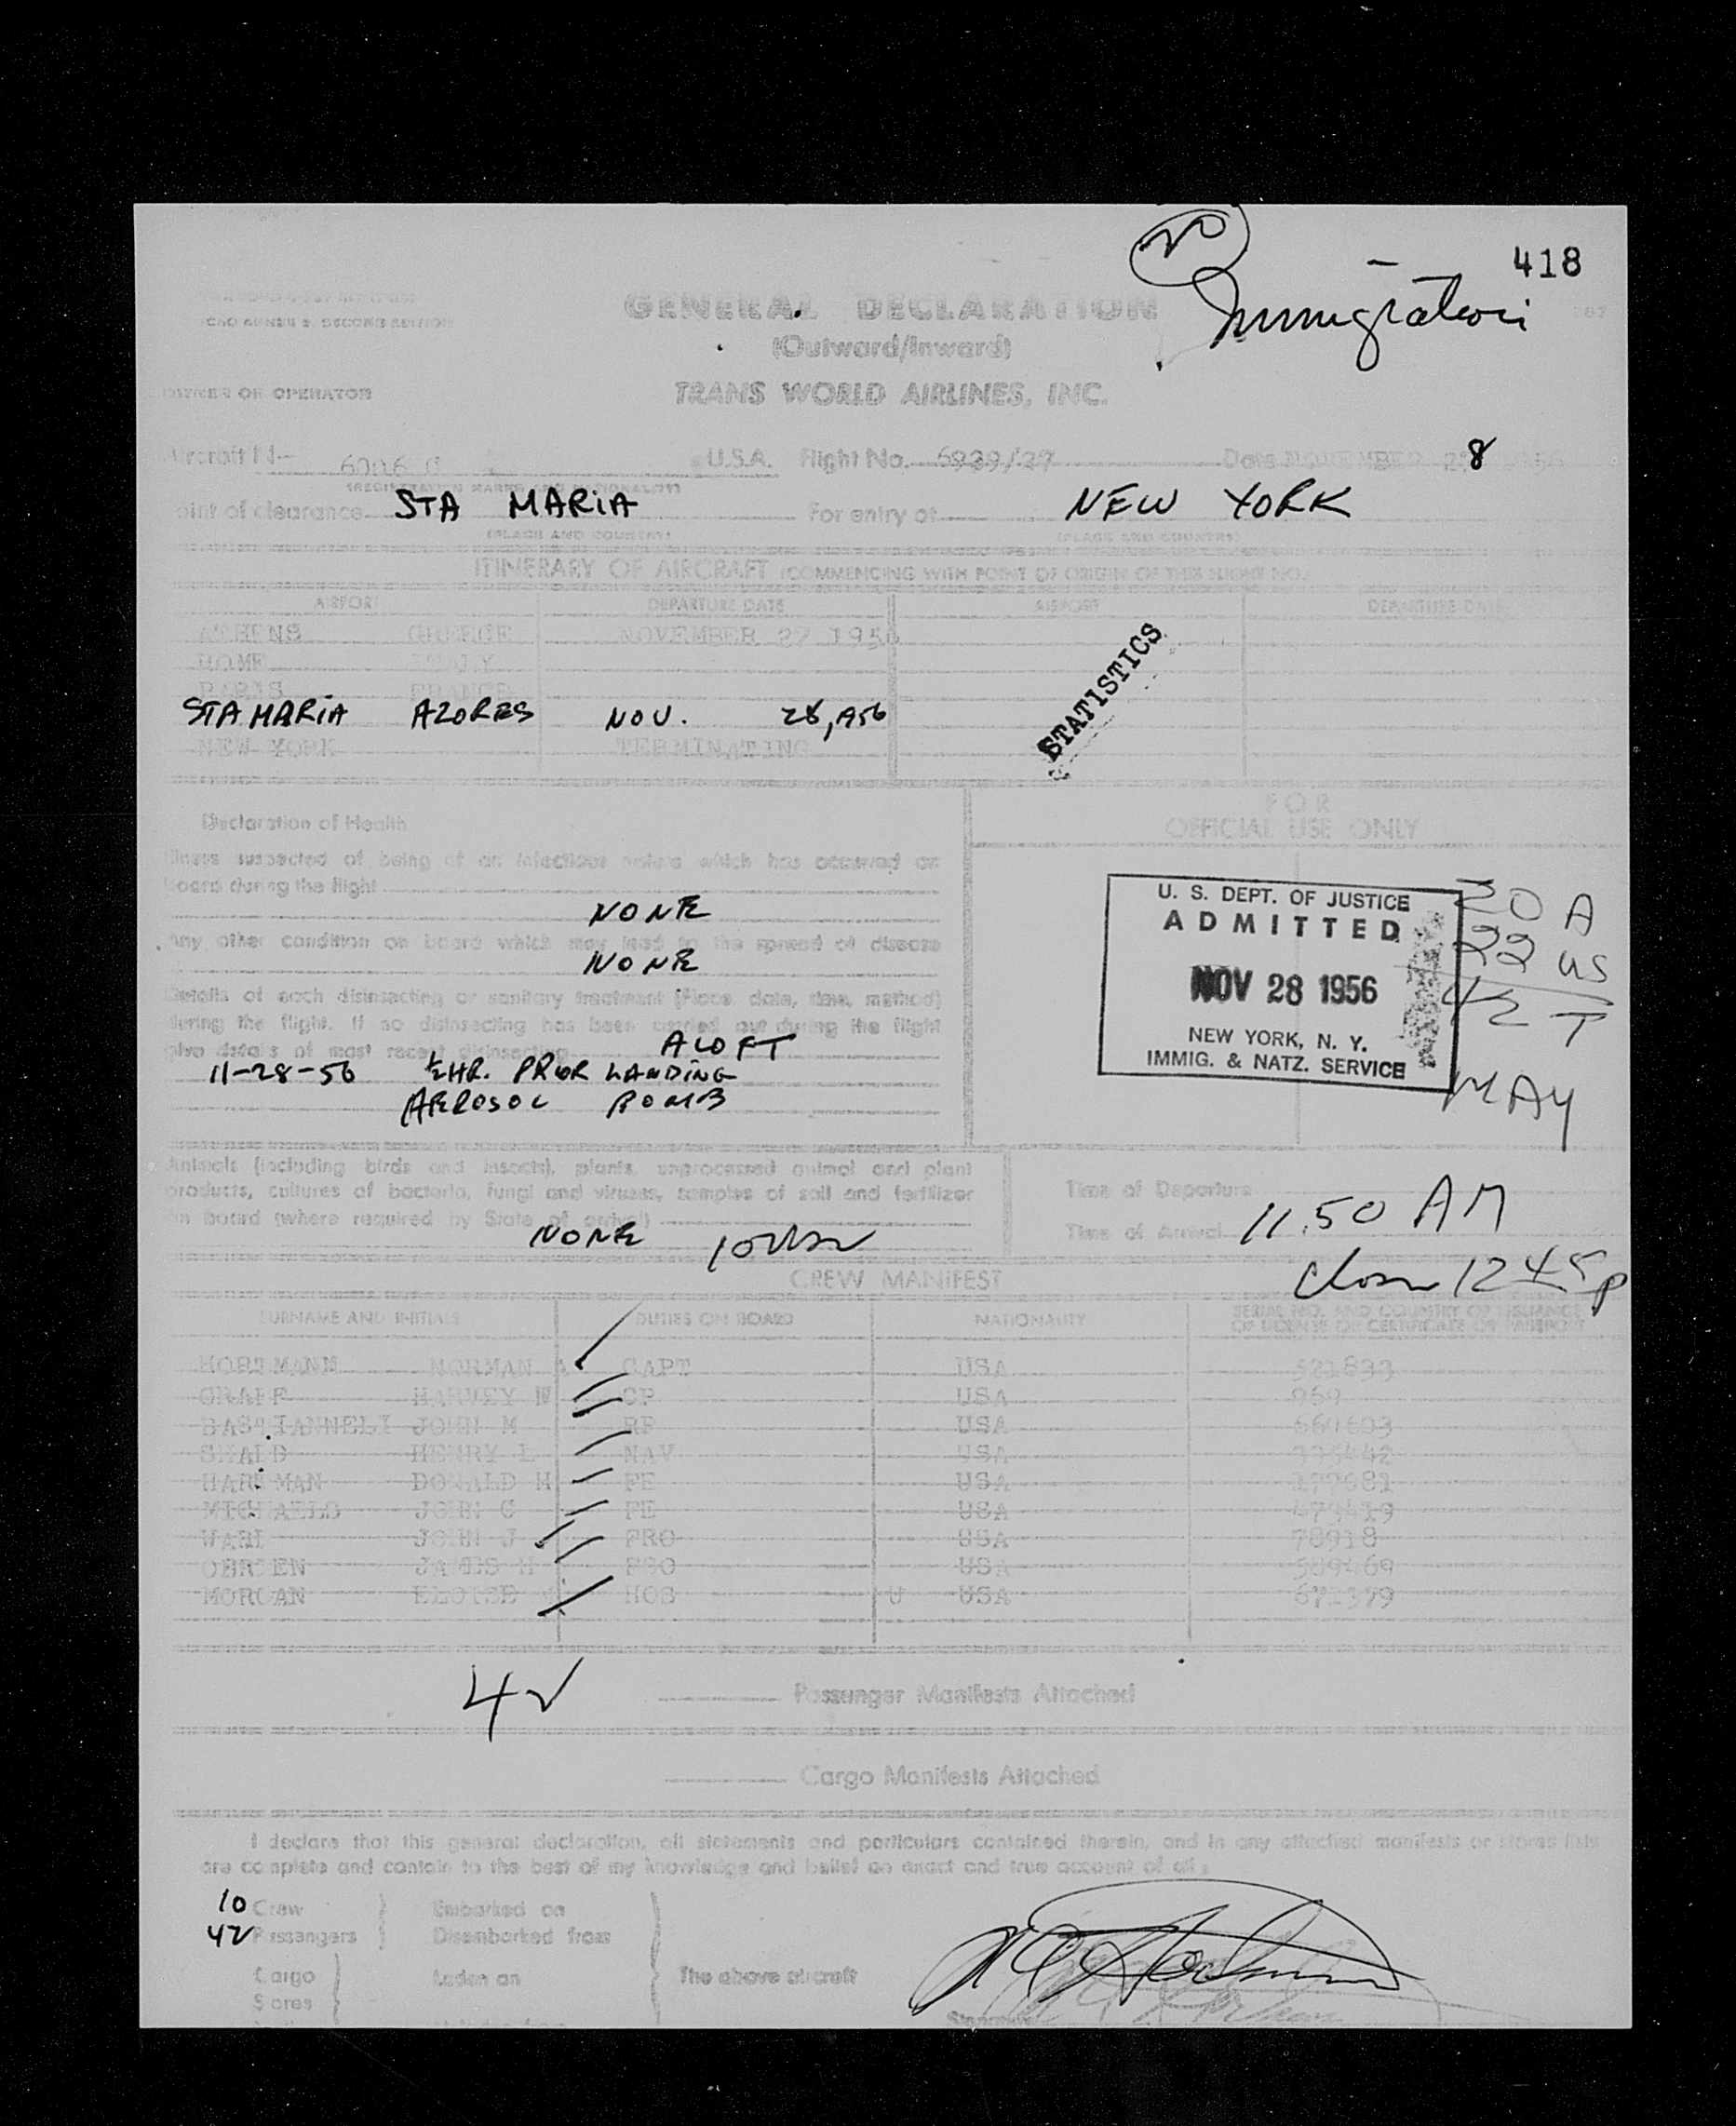 418
Immigration
GENERAL DECLARATION
(Outward/Inward)
OWNER OR OPERATOR TRANS WORLD AIRLINES, INC.
U.S.A. Flight No. Date NOVEMBER 8
(REGISTRATION MARKS AND NATIONALITY)
Point of clearance STA MARIA For entry at NEW YORK
(PLACE AND COUNTRY) (PLACE AND COUNTRY)
ITINERARY OF AIRCRAFT (COMMENCING WITH POINT OF ORIGIN OF THIS FLIGHT NO.)
AIRPORT DEPARTURE DATE AIRPORT DEPARTURE DATE
ATHENS GREECE NOVEMBER 27 1956
ROME ITALY
PARIS FRANCE
STA MARIA AZORES NOV. 28, 1956
NEW YORK TERMINATING
STATISTICS
Declaration of Health
FOR
OFFICIAL USE ONLY
Illness suspected of being of an infectious nature which has occurred on
board during the flight
NONE
Any other condition on board which may lead to the spread of disease
NONE
Details of each disinsecting or sanitary treatment (Place, date, time, method)
during the flight. If no disinsecting has been carried out during the flight
give details of most recent disinsecting ALOFT
11-28-56 ½HR. PRIOR LANDING
AEROSOL BOMB
U. S. DEPT. OF JUSTICE
ADMITTED
NOV 28 1956
NEW YORK, N. Y.
IMMIG. & NATZ. SERVICE
20 A
22 US
42 T
MAY
Animals (including birds and insects), plants, unprocessed animal and plant
products, cultures of bacteria, fungi and viruses, samples of soil and fertilizer
on board (where required by State of arrival)
NONE
Time of Departure
Time of Arrival 11.50 AM
Close 12 45 p
CREW MANIFEST
SURNAME AND INITIALS DUTIES ON BOARD NATIONALITY SERIAL NO. AND COUNTRY OF ISSUANCE
OF LICENSE OR CERTIFICATE OR PASSPORT
NORMAN A CAPT USA
HARVEY W USA
JOHN M USA
HENRY L NAV USA
HARTMAN DONALD H FE USA
MICHAELS JOHN C FE USA
JOHN J PRO USA 78918
OBRIEN JAMES USA
MORGAN ELOISE HOS USA
42
Passenger Manifests Attached
Cargo Manifests Attached
I declare that this general declaration, all statements and particulars contained therein, and in any attached manifests or stores lists
are complete and contain to the best of my knowledge and belief an exact and true account of all:
10 Crew Embarked on
42 Passengers Disembarked from
Cargo Laden on The above aircraft
Stores